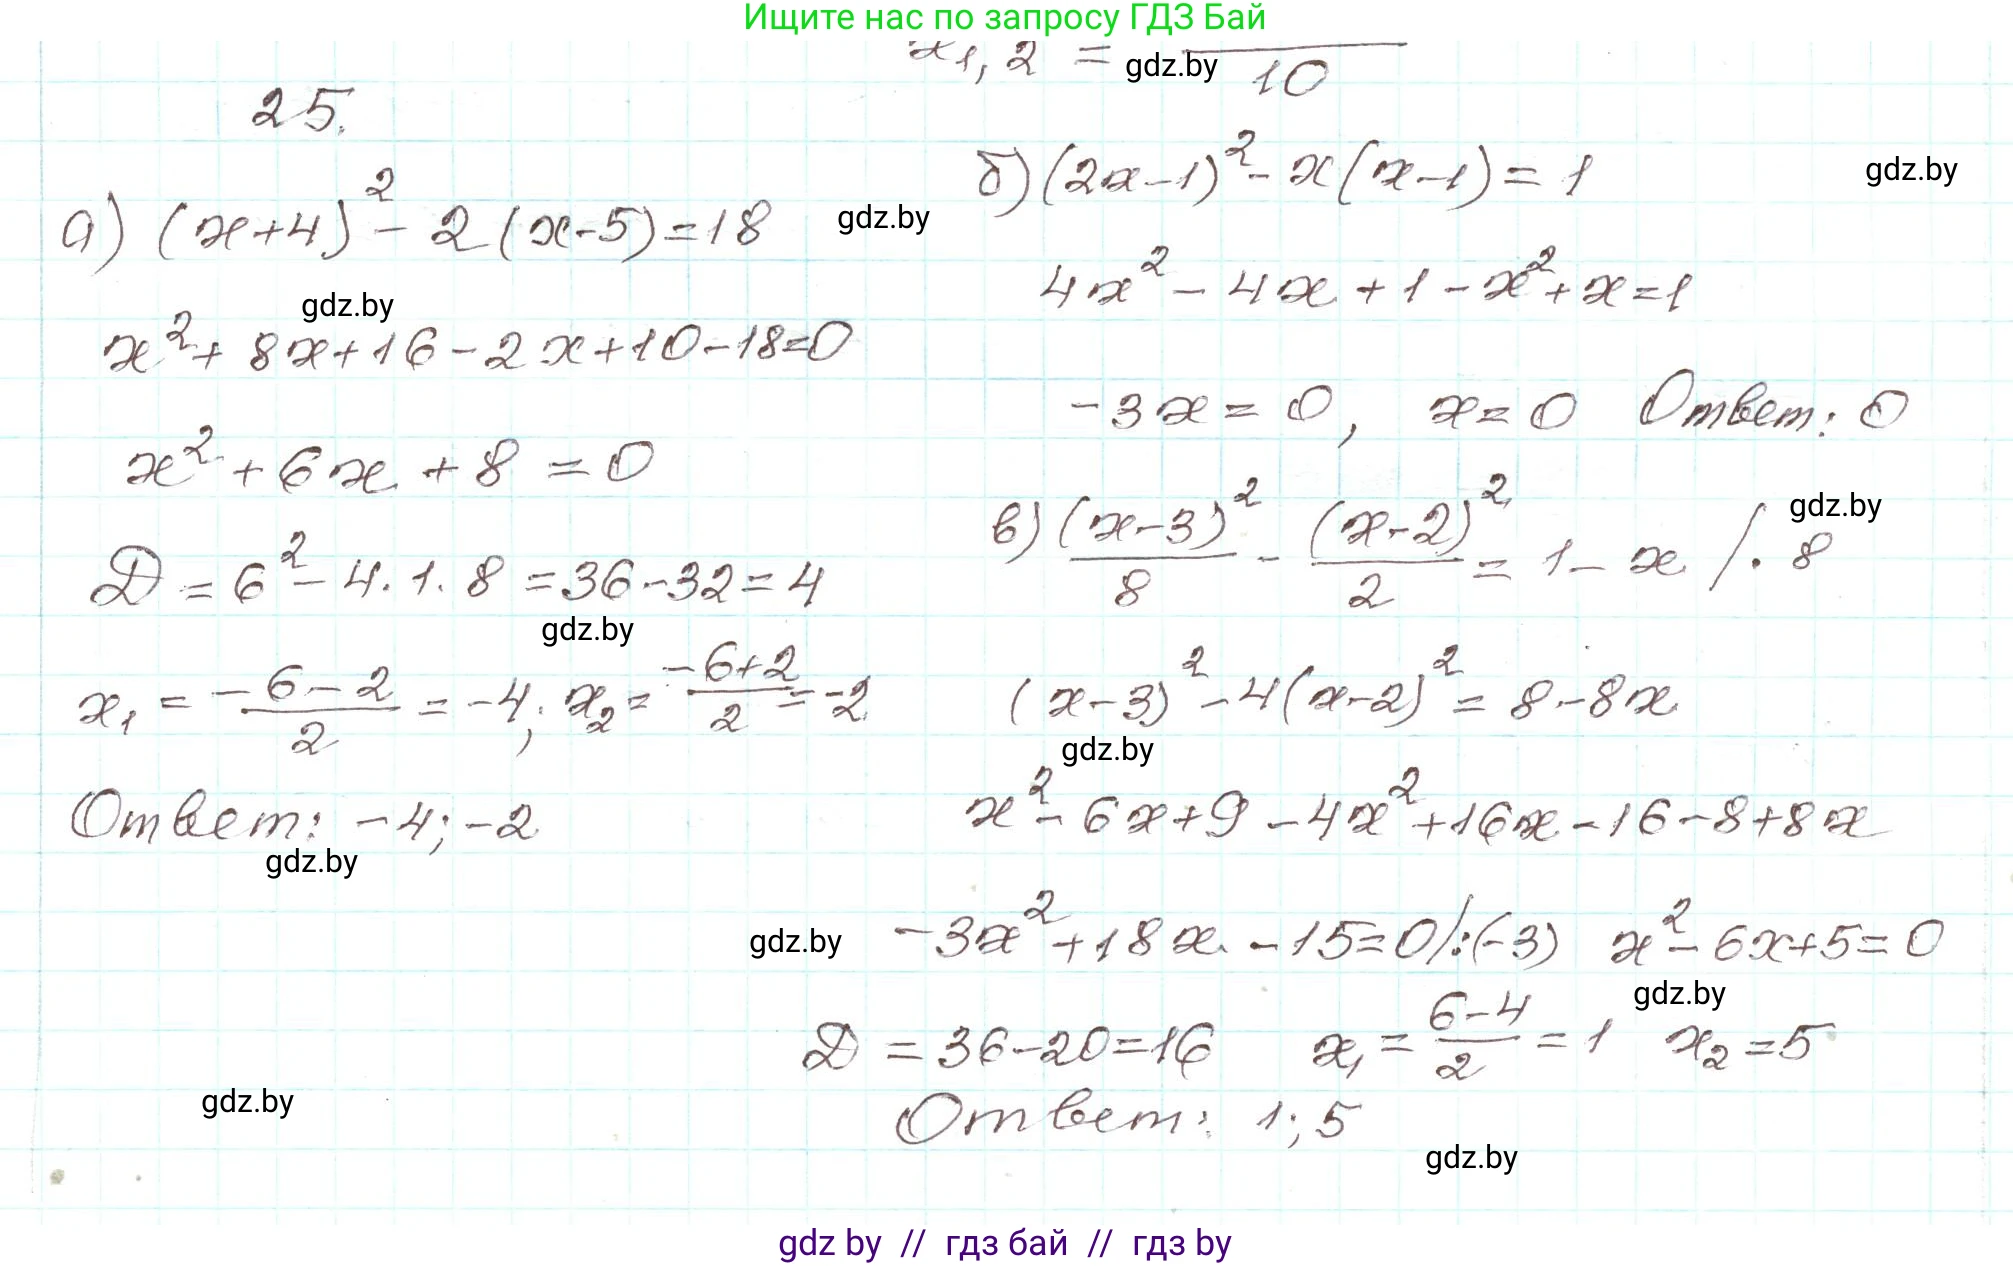 Ищите нас по запросу ГДЗ Бай
x₁,₂ = ― / 10
gdz.by
25.
а) (x+4)² - 2(x-5)=18
gdz.by
gdz.by
x²+8x+16-2x+10-18=0
x²+6x+8=0
D=6²-4·1·8=36-32=4
gdz.by
x₁ = (-6-2)/2 = -4; x₂ = (-6+2)/2 = -2
Ответ: -4; -2
gdz.by
б) (2x-1)² - x(x-1) = 1
gdz.by
4x² - 4x + 1 - x² + x = 1
-3x = 0, x = 0 Ответ: 0
в) (x-3)²/8 - (x-2)²/2 = 1 - x /· 8
gdz.by
(x-3)² - 4(x-2)² = 8 - 8x
gdz.by
x² - 6x + 9 - 4x² + 16x - 16 - 8 + 8x
gdz.by
-3x² + 18x - 15 = 0 /:(-3) x² - 6x + 5 = 0
gdz.by
D = 36-20=16 x₁ = (6-4)/2 = 1 x₂ = 5
gdz.by
Ответ: 1; 5
gdz.by
gdz by // гдз бай // gdz by